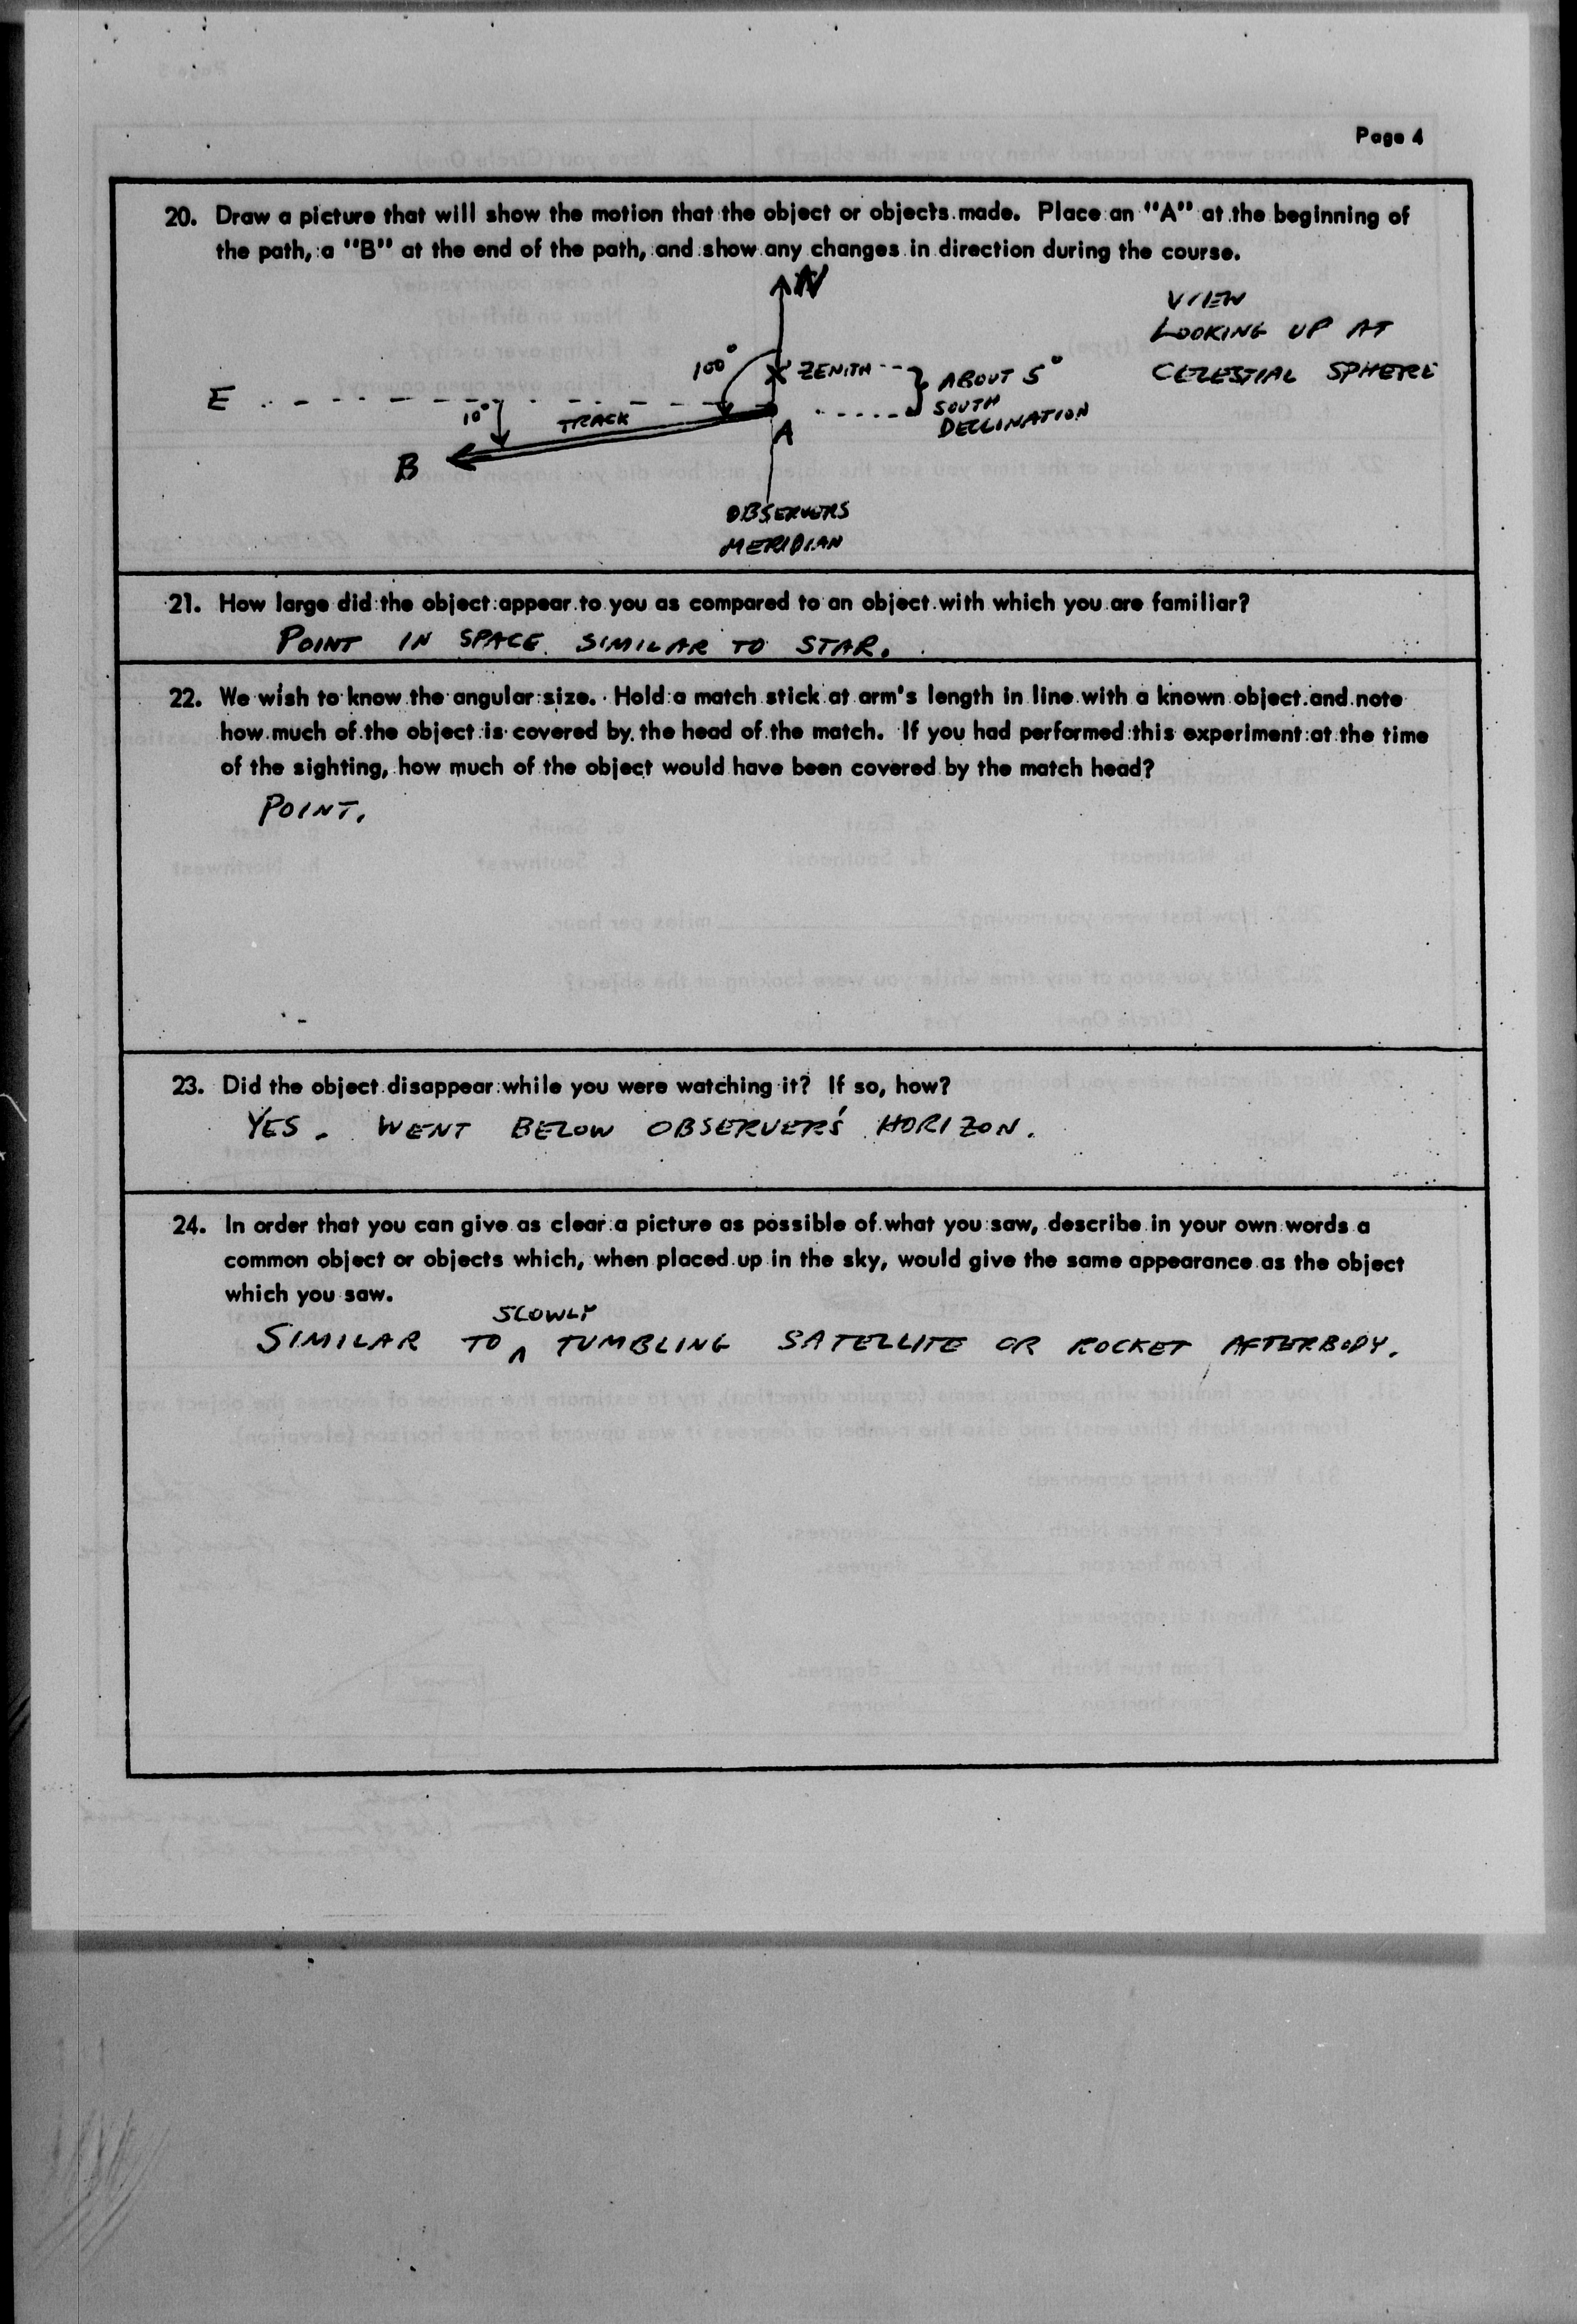 Page 4
20. Draw a picture that will show the motion that the object or objects made. Place an "A" at the beginning of
the path, a "B" at the end of the path, and show any changes in direction during the course.
N
VIEW
LOOKING UP AT
CELESTIAL SPHERE
100°
ZENITH
ABOUT 5°
SOUTH
DECLINATION
E
10°
TRACK
A
B
OBSERVERS
MERIDIAN
21. How large did the object appear to you as compared to an object with which you are familiar?
POINT IN SPACE SIMILAR TO STAR.
22. We wish to know the angular size. Hold a match stick at arm's length in line with a known object and note
how much of the object is covered by the head of the match. If you had performed this experiment at the time
of the sighting, how much of the object would have been covered by the match head?
POINT.
23. Did the object disappear while you were watching it? If so, how?
YES. WENT BELOW OBSERVER'S HORIZON.
24. In order that you can give as clear a picture as possible of what you saw, describe in your own words a
common object or objects which, when placed up in the sky, would give the same appearance as the object
which you saw.
SLOWLY
SIMILAR TO ^ TUMBLING SATELLITE OR ROCKET AFTERBODY.